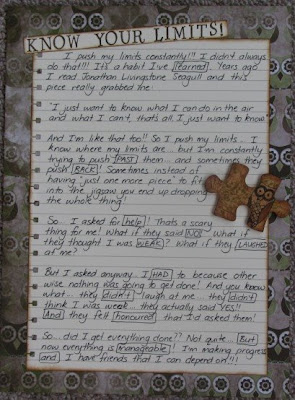 KNOW YOUR LIMITS!
I push my limits constantly!!! I didn't always
do that!!! It's a habit I've learned. Years ago
I read Jonathan Livingstone Seagull and this
piece really grabbed me:
"I just want to know what I can do in the air
and what I can't, that's all, I just want to know.
And I'm like that too!! So I push my limits... I
know where my limits are... but I'm constantly
trying to push PAST them... and sometimes they
push BACK! Sometimes instead of
having just one more piece to fit
into the jigsaw you end up dropping
the whole thing!
So... I asked for help! That's a scary
thing for me! What if they said NO? What if
they thought I was WEAK? What if they LAUGHED
at me?
But I asked anyway. I HAD to because other
wise nothing was going to get done! And you know
what... they didn't laugh at me... they didn't
think I was weak... they actually said YES!!
And they felt honoured that I'd asked them!
So... did I get everything done?? Not quite... But
now everything is manageable! I'm making progress
and I have friends that I can depend on!!!